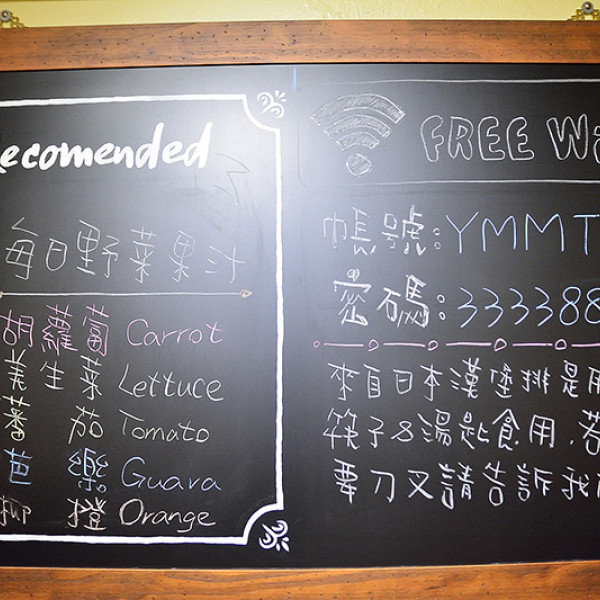 ecomended
每日野菜果汁
胡蘿蔔 Carrot
美生菜 Lettuce
蕃茄 Tomato
芭樂 Guava
柳橙 Orange
FREE Wi
帳號:YMMT
密碼:333388
來自日本漢堡排是用
筷子&湯匙食用.若
要刀叉請告訴我